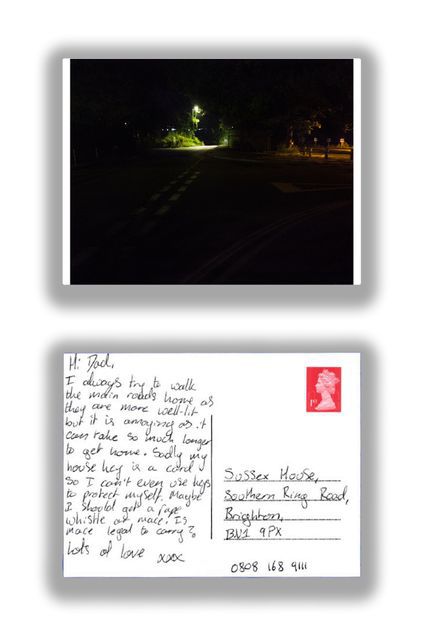 Hi Dad,
I always try to walk
the main roads home as
they are more well-lit
but it is annoying as it
can take so much longer
to get home. Sadly my
house key is a card
so I can't even use keys
to protect myself. Maybe
I should get a rape
whistle or mace. Is
mace legal to carry?
Lots of love xxx
1st
Sussex House,
Southern Ring Road,
Brighton,
BN1 9PX
0808 168 9111